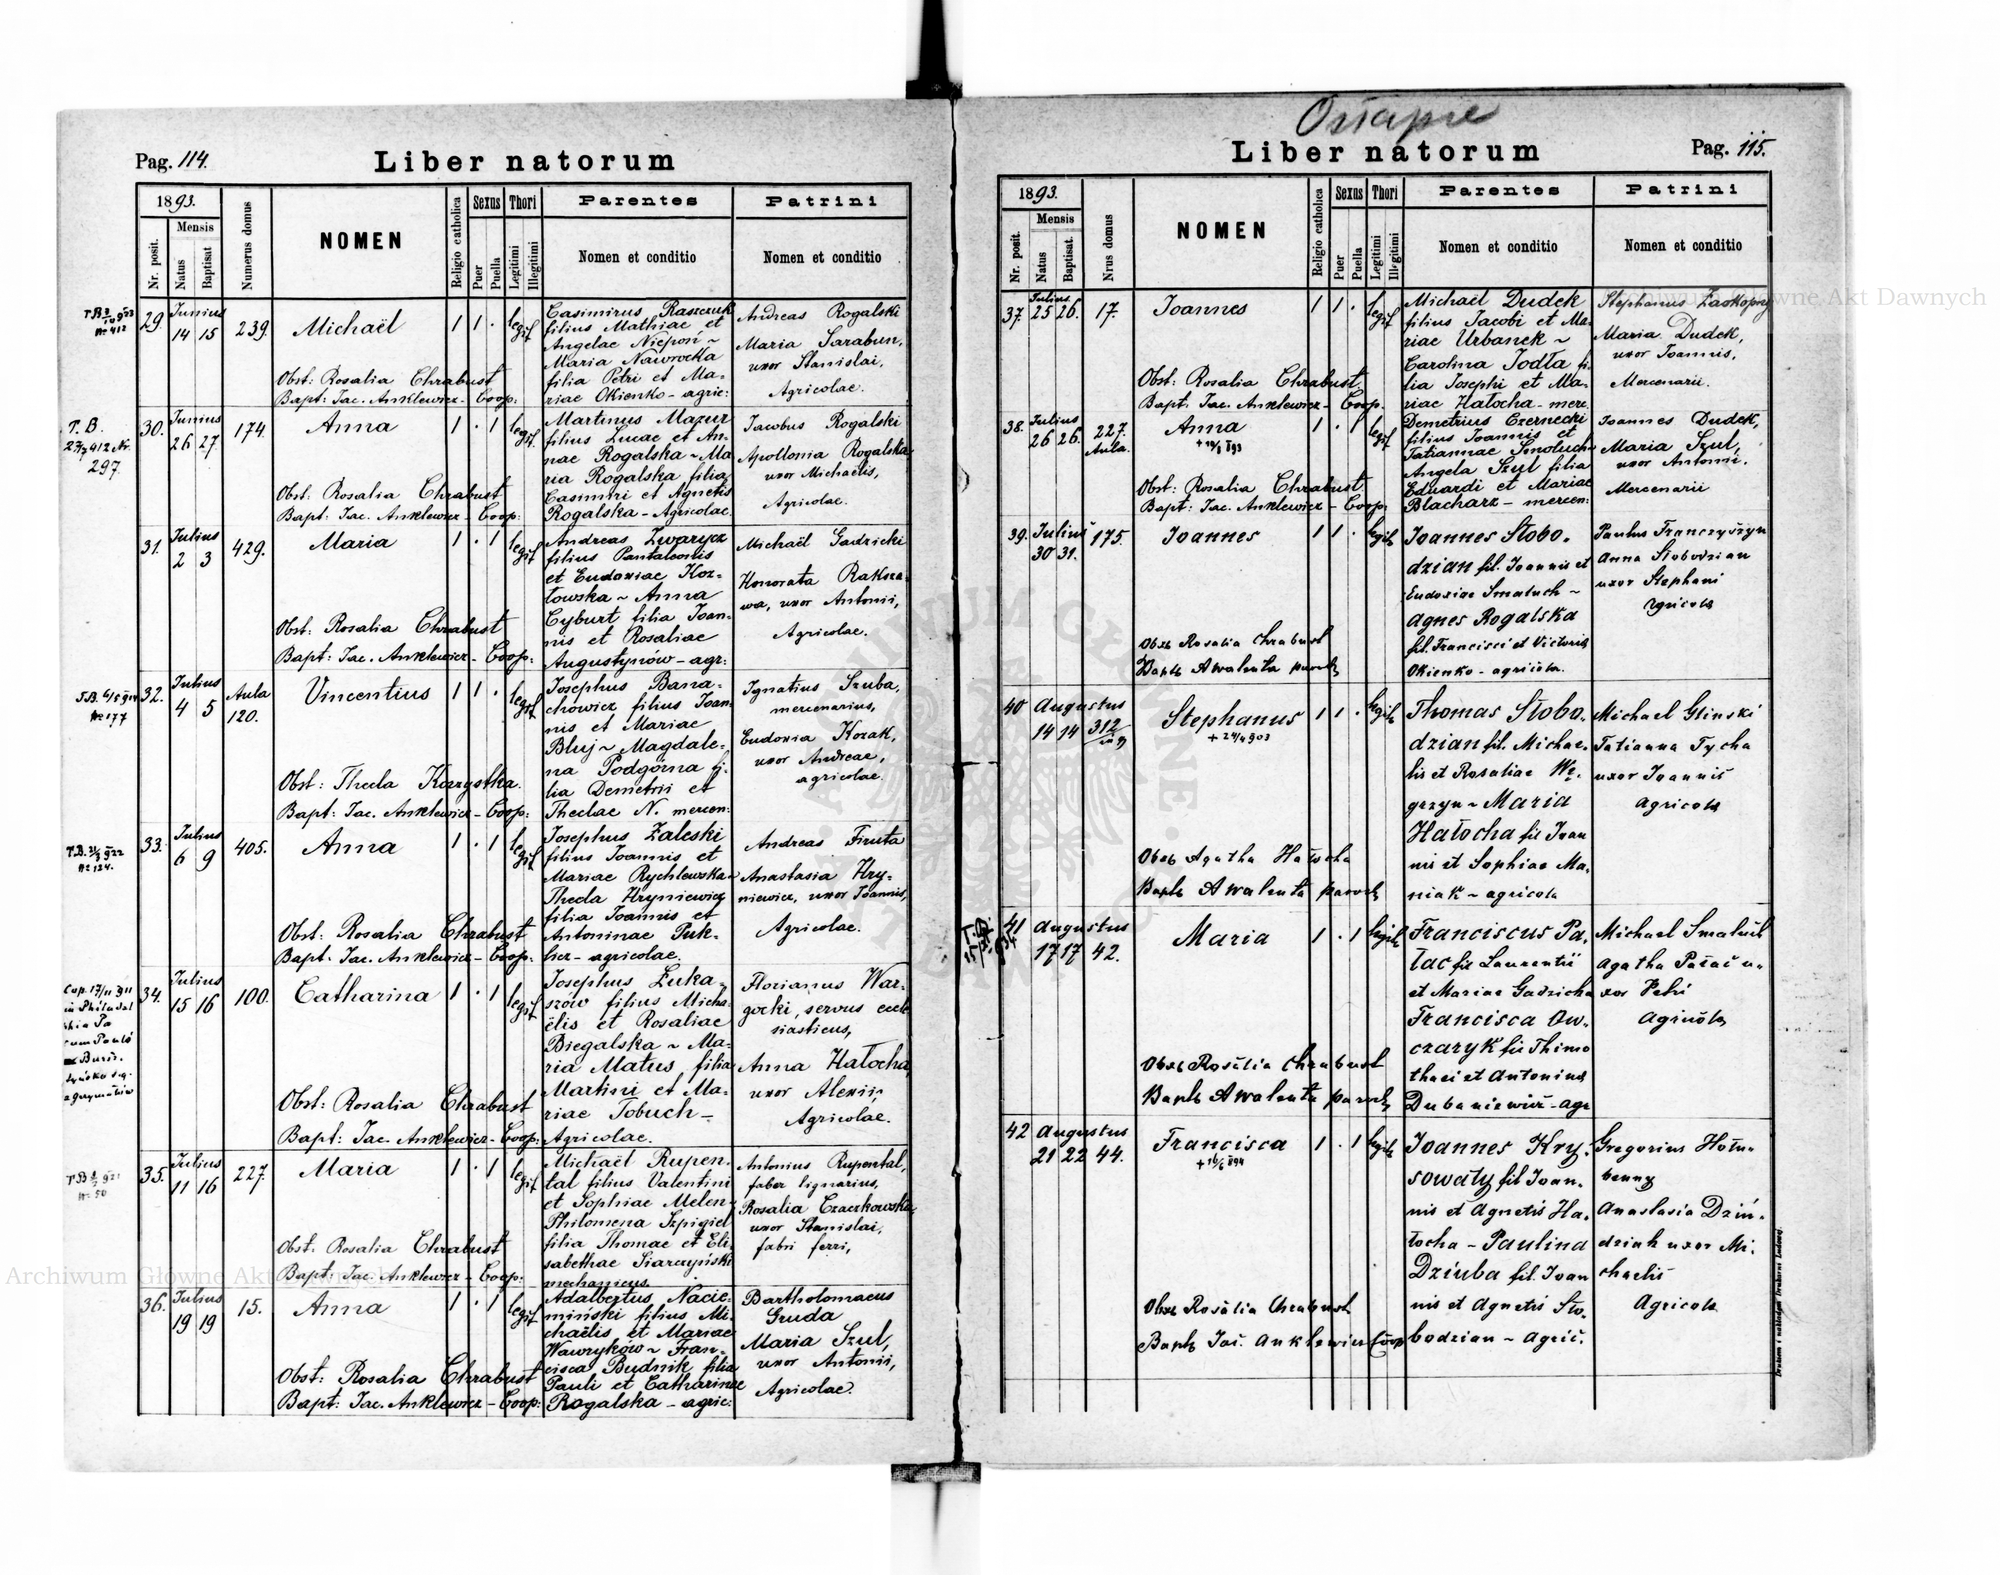 Pag. 114.
Liber natorum
1893.
Nr. posit.
Mensis
Natus
Baptisat
Numerus domus
NOMEN
Religio catholica
Sexus
Puer
Puella
Thori
Legitimi
Illegitimi
Parentes
Nomen et conditio
Patrini
Nomen et conditio
29.
Junius
14 15
239.
Michaël
1 1 .
legit
Obst: Rosalia Chrabust
Bapt: Jac. Anklewicz - Coop:
Casimirus Raszczuk
filius Mathiae et
Angelae Niepoń ~
Maria Nawrocka
filia Petri et Ma-
riae Okienko - agric:
Andreas Rogalski
Maria Sarabun,
uxor Stanislai,
Agricolae.
T. B.
297.
30.
Junius
26 27
174.
Anna
1 . 1
legit
Obst: Rosalia Chrabust
Bapt: Jac. Anklewicz - Coop:
Martinus Mazur
filius Lucae et An-
nae Rogalska ~ Ma
ria Rogalska filia
Casimiri et Agnetis
Rogalska - Agricolae.
Jacobus Rogalski
Apollonia Rogalska
uxor Michaëlis,
Agricolae.
31.
Julius
2 3
429.
Maria
1 . 1
legit
Obst: Rosalia Chrabust
Bapt: Jac. Anklewicz - Coop:
Andreas Zwarycz
filius Pantaleonis
et Eudoxiae Koz-
łowska ~ Anna
Cyburt filia Joan-
nis et Rosaliae
Augustynów - agr:
Michaël Gadzicki
Honorata Raksza-
wa, uxor Antonii,
Agricolae.
32.
Julius
4 5
Aula
120.
Vincentius
1 1 .
legit
Obst: Thecla Korzystka.
Bapt: Jac. Anklewicz - Coop:
Josephus Bana-
chowicz filius Joan-
nis et Mariae
Bluj ~ Magdale-
na Podgórna fi-
lia Demetrii et
Theclae N. mercen:
Ignatius Szuba,
mercenarius,
Eudoxia Kozak,
uxor Andreae,
agricolae.
33.
Julius
6 9
405.
Anna
1 . 1
legit
Obst: Rosalia Chrabust
Bapt: Jac. Anklewicz - Coop:
Josephus Zaleski
filius Joannis et
Mariae Rychlewska ~
Thecla Hryniewicz
filia Joannis et
Antoninae Puk-
licz - agricolae.
Andreas Firuta
Anastasia Hry-
niewicz, uxor Joannis,
Agricolae.
34.
Julius
15 16
100.
Catharina
1 . 1
legit
Obst: Rosalia Chrabust
Bapt: Jac. Anklewicz - Coop:
Josephus Łuka-
szów filius Micha-
ëlis et Rosaliae
Biegalska ~ Ma-
ria Matus filia
Martini et Ma-
riae Tobuch -
Agricolae.
Florianus War-
gocki, servus eccle
siasticus,
Anna Hałocha,
uxor Alexii,
Agricolae.
35.
Julius
11 16
227.
Maria
1 . 1
legit
Obst: Rosalia Chrabust
Bapt: Jac. Anklewicz - Coop:
Michaël Rupen-
tal filius Valentini
et Sophiae Melen ~
Philomena Szpigiel
filia Thomae et Eli-
sabethae Siarczyński
mechanicus.
Antonius Rupental,
faber lignarius,
Rosalia Czaczkowska,
uxor Stanislai,
fabri ferri,
36.
Julius
19 19
15.
Anna
1 . 1
legit
Obst: Rosalia Chrabust
Bapt: Jac. Anklewicz - Coop:
Adalbertus Nacie-
miński filius Mi-
chaëlis et Mariae
Wawryków ~ Fran-
cisca Budnik filia
Pauli et Catharinae
Rogalska - agric:
Bartholomaeus
Gruda
Maria Szul,
uxor Antonii,
Agricolae.
Ostapie
Liber natorum
Pag. 115.
1893.
Nr. posit.
Mensis
Natus
Baptisat.
Nrus domus
NOMEN
Religio catholica
Sexus
Puer
Puella
Thori
Legitimi
Illegitimi
Parentes
Nomen et conditio
Patrini
Nomen et conditio
37.
Julius
25 26.
17.
Joannes
1 1 .
legit
Obst: Rosalia Chrabust
Bapt. Jac. Anklewicz - Coop.
Michaël Dudek
filius Jacobi et Ma-
riae Urbanek ~
Carolina Jodła fi-
lia Josephi et Ma-
riae Hałocha - merc.
Stephanus Zaskopny
Maria Dudek,
uxor Joannis,
Mercenarii.
38.
Julius
26 26.
227.
Aula.
Anna
1 . 1
legit
Obst: Rosalia Chrabust
Bapt: Jac. Anklewicz - Coop:
Demetrius Czernecki
filius Joannis et
Tatiannae Smoluch ~
Angela Szul filia
Eduardi et Mariae
Blacharz - mercen:
Joannes Dudek,
Maria Szul,
uxor Antonii,
Mercenarii
39.
Julius
30 31.
175.
Joannes
1 1 .
legit
Obst Rosalia Chrabust
Bapt A Walenta paroch
Joannes Słobo-
dzian fil. Joannis et
Eudoxiae Smaluch ~
Agnes Rogalska
fil. Francisci et Victoria
Okienko - agricola.
Paulus Franczyszyn
Anna Słobodzian
uxor Stephani
Agricola
40
Augustus
14 14
312
Stephanus
1 1 .
legit
Obst Agatha Hałocha
Bapt A Walenta paroch
Thomas Słobo-
dzian fil. Michae-
lis et Rosaliae Wę-
grzyn ~ Maria
Hałocha fil Joan
nis et Sophiae Ma-
niak ~ agricola
Michael Glinski
Tatianna Tycha
uxor Joannis
Agricola
41
Augustus
17 17
42.
Maria
1 . 1
legit
Obst Rosalia Chrabust
Bapt A Walenta paroch
Franciscus Pa-
łac fil Laurentii
et Mariae Gadzicka
Francisca Ow-
czaryk fil Thimo
thaei et Antonina
Dubaniewicz - agr
Michael Smaluch
Agatha Pałac u-
xor Petri
Agricola
42
Augustus
21 22
44.
Francisca
1 . 1
legit
Obst Rosalia Chrabust
Bapt Jac. Anklewicz Coop
Joannes Kry-
sowaty fil Joan-
nis et Agnetis Ha-
łocha - Paulina
Dziuba fil. Joan
nis et Agnetis Sło-
bodzian ~ agric.
Gregorius Hołu-
Anastasia Dziu-
dziak uxor Mi-
chaelis
Agricola
Drukiem i nakładem Drukarni Ludowej.
Archiwum Główne Akt Dawnych
Archiwum Główne Akt Dawnych